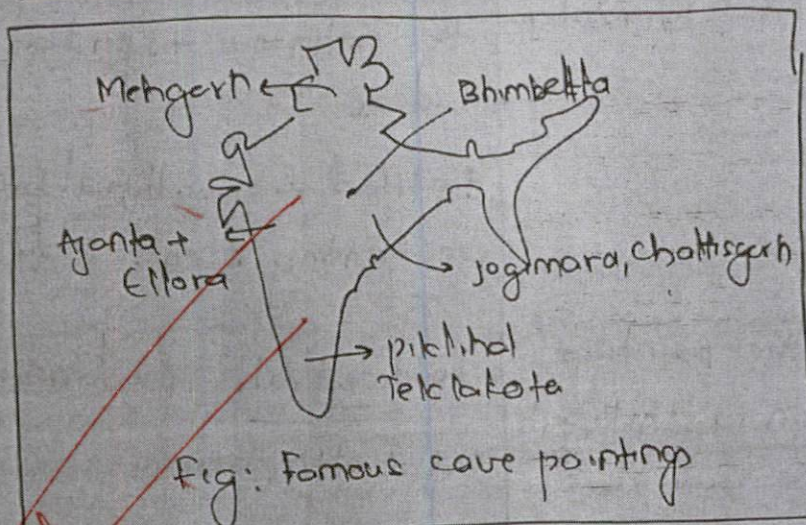 Mehgarh
Bhimbetka
Ajanta +
Ellora
jogimara, Chattisgarh
piklihal
Teklakota
Fig: Famous cave paintings